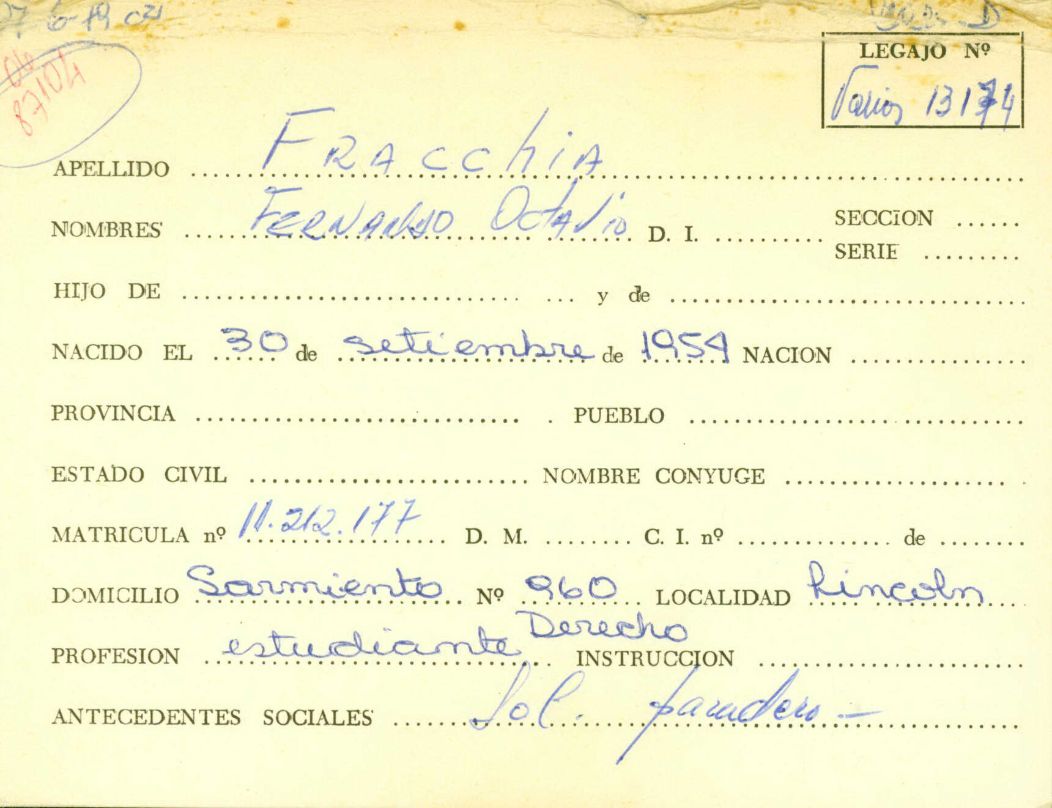 87104
LEGAJO Nº
Varios 13174
APELLIDO FRACCHIA
NOMBRES FERNANDO OCTAVIO D. I. .......... SECCION ......
SERIE .........
HIJO DE .................................. ... y de ....................................
NACIDO EL 30 de setiembre de 1954 NACION ..................
PROVINCIA ................................. . PUEBLO ..................................
ESTADO CIVIL ......................... NOMBRE CONYUGE ........................
MATRICULA nº 11.212.177 D. M. ........ C. I. nº .............. de ........
DOMICILIO Sarmiento Nº 960 LOCALIDAD Lincoln
PROFESION estudiante Derecho INSTRUCCION ..........................
ANTECEDENTES SOCIALES Sol. paradero —